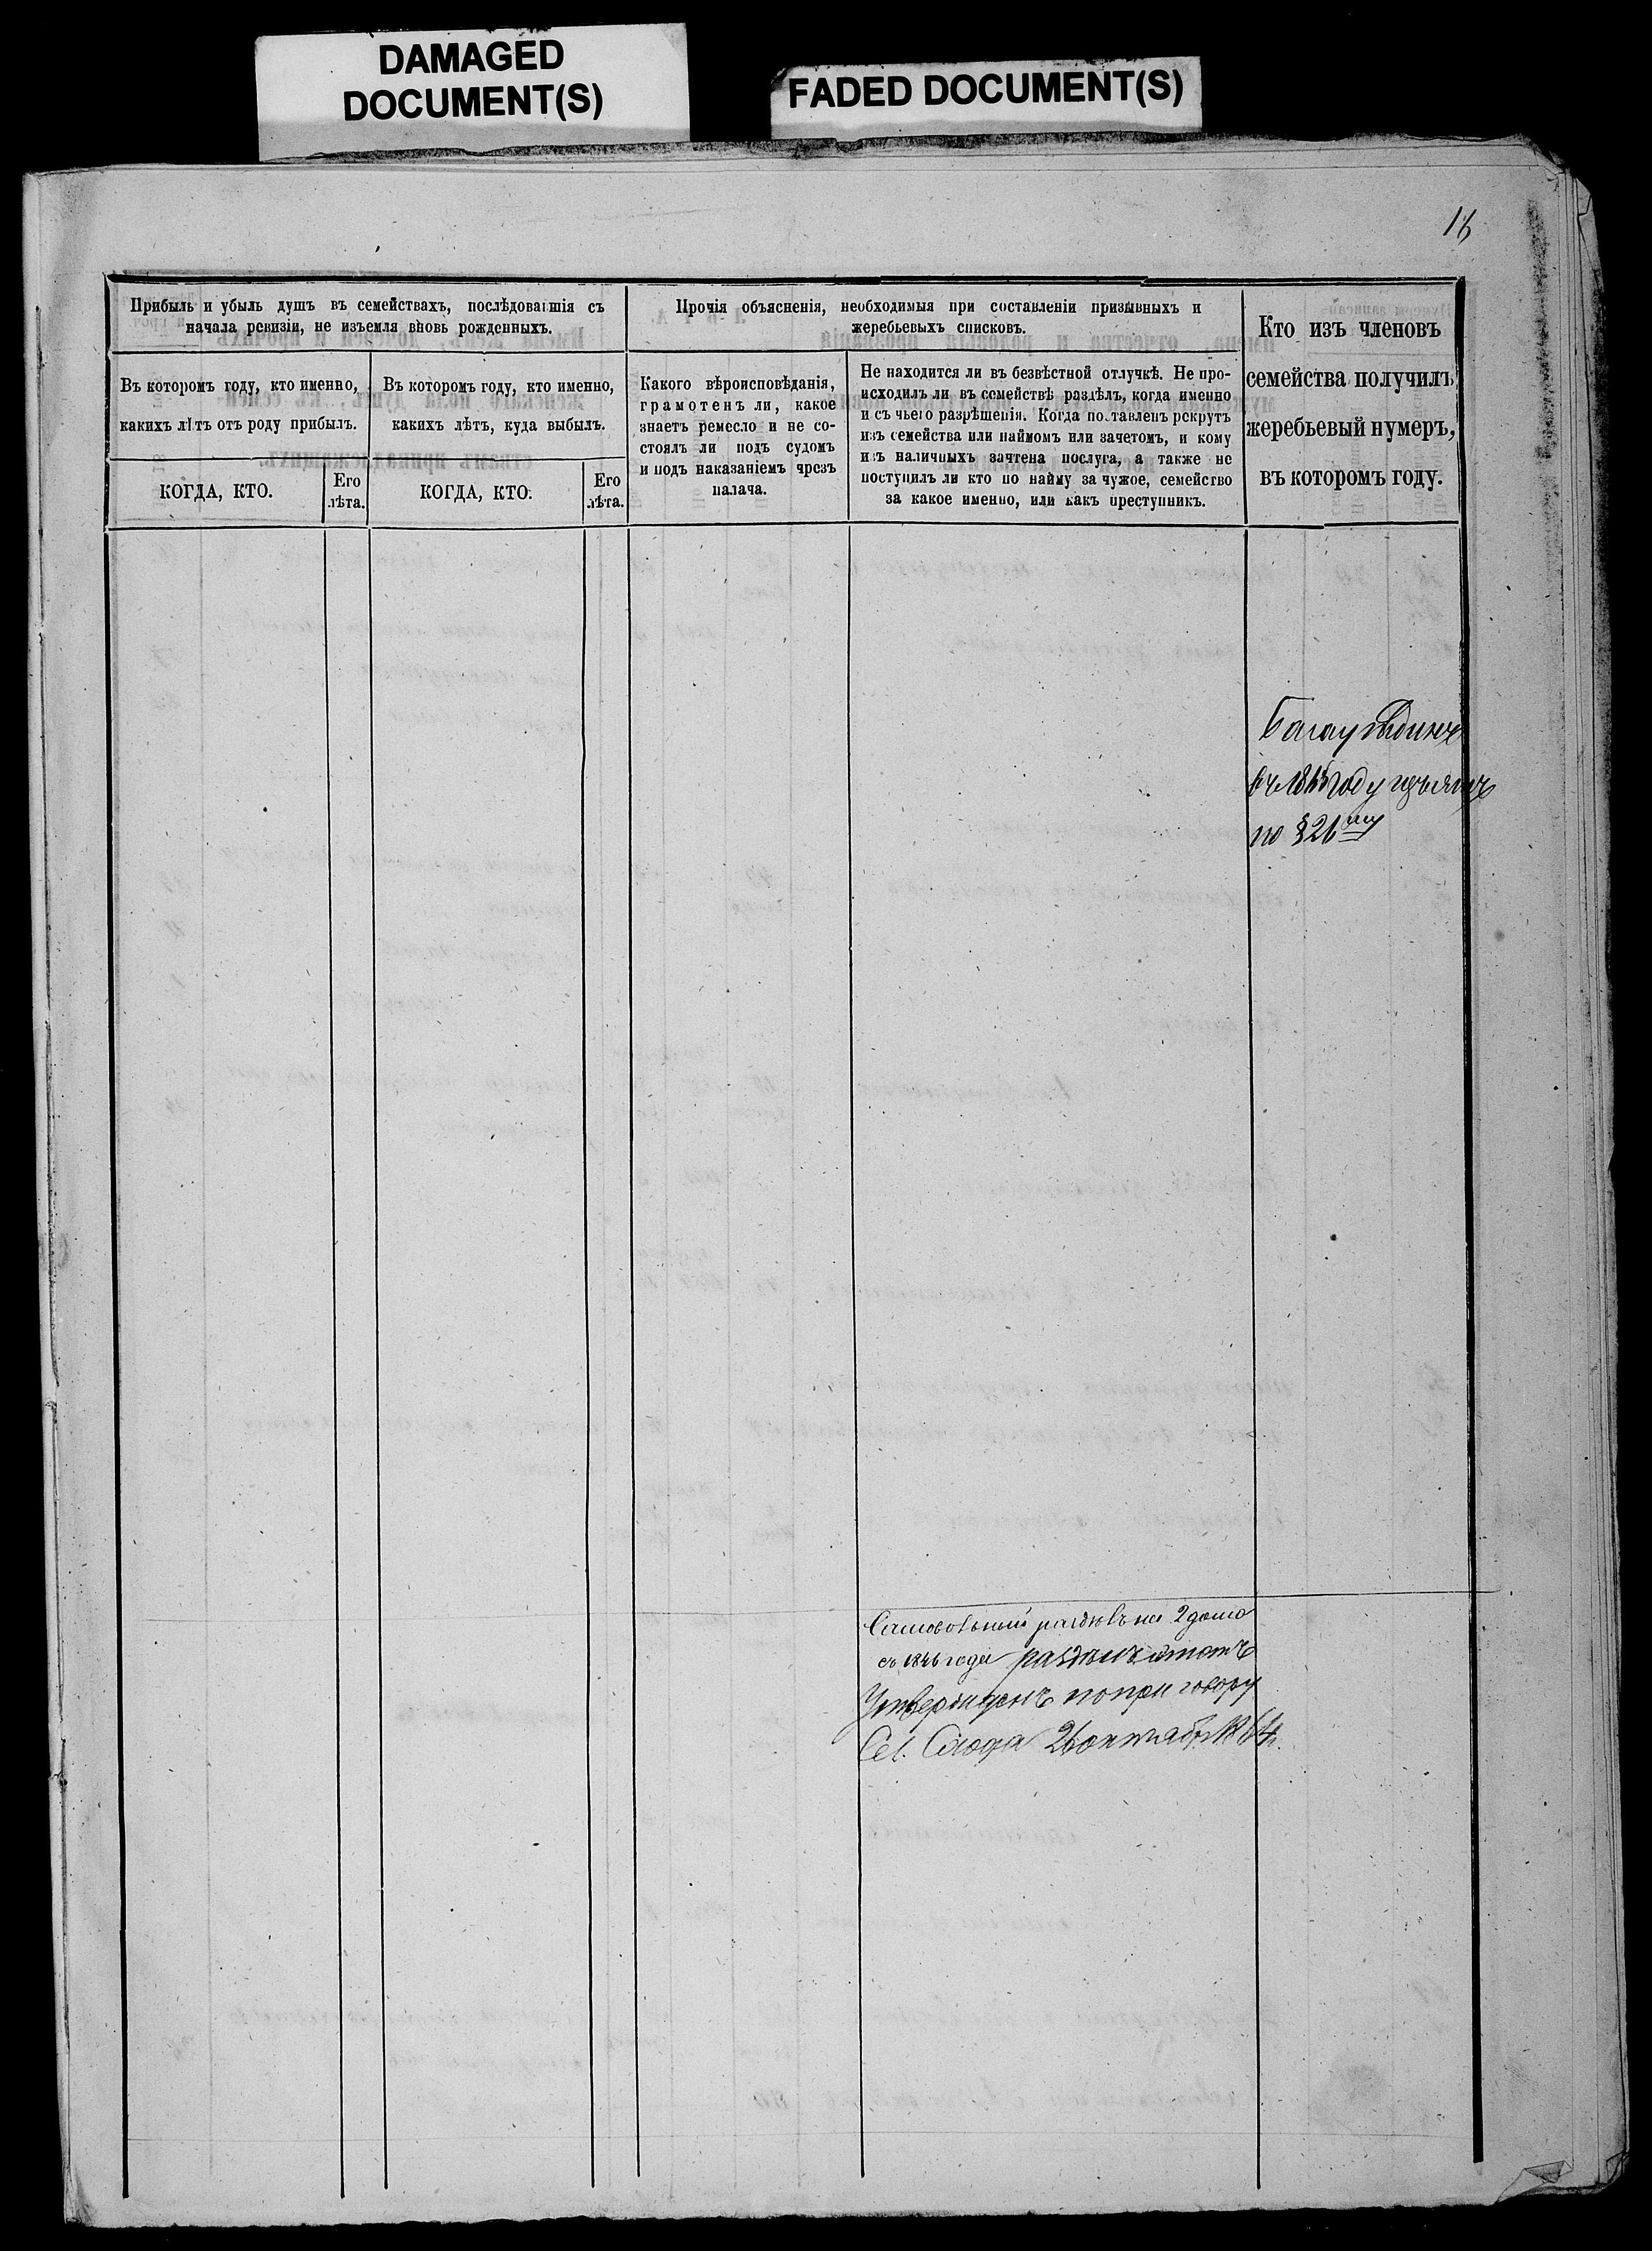 DAMAGED
DOCUMENT(S)
FADED DOCUMENT(S)
16
Прибыль и убыль душъ въ семействахъ, послѣдовавшія съ
начала ревизіи, не изъемля вновь рожденныхъ.
Прочія объясненія, необходимыя при составленіи призывныхъ и
жеребьевыхъ списковъ.
Кто изъ членовъ
семейства получилъ
жеребьевый нумеръ,
въ которомъ году.
Въ которомъ году, кто именно,
какихъ лѣтъ отъ роду прибылъ.
Въ которомъ году, кто именно,
какихъ лѣтъ, куда выбылъ.
Какого вѣроисповѣданія,
грамотенъ ли, какое
знаетъ ремесло и не со-
стоялъ ли подъ судомъ
и подъ наказаніемъ чрезъ
палача.
Не находится ли въ безвѣстной отлучкѣ. Не про-
исходилъ ли въ семействѣ раздѣлъ, когда именно
и съ чьего разрѣшенія. Когда поставленъ рекрутъ
изъ семейства или наймомъ или зачетомъ, и кому
изъ наличныхъ зачтена послуга, а также не
поступилъ ли кто по найму за чужое, семейство
за какое именно, или какъ преступникъ.
КОГДА, КТО.
Его
лѣта.
КОГДА, КТО.
Его
лѣта.
году изъятъ
по § 26му
Самовольный раздѣлъ на 2 дома
съ 1846 года раздѣлъ этотъ
Утвержденъ по приговору
Сел. Схода 26 октября 1864г.